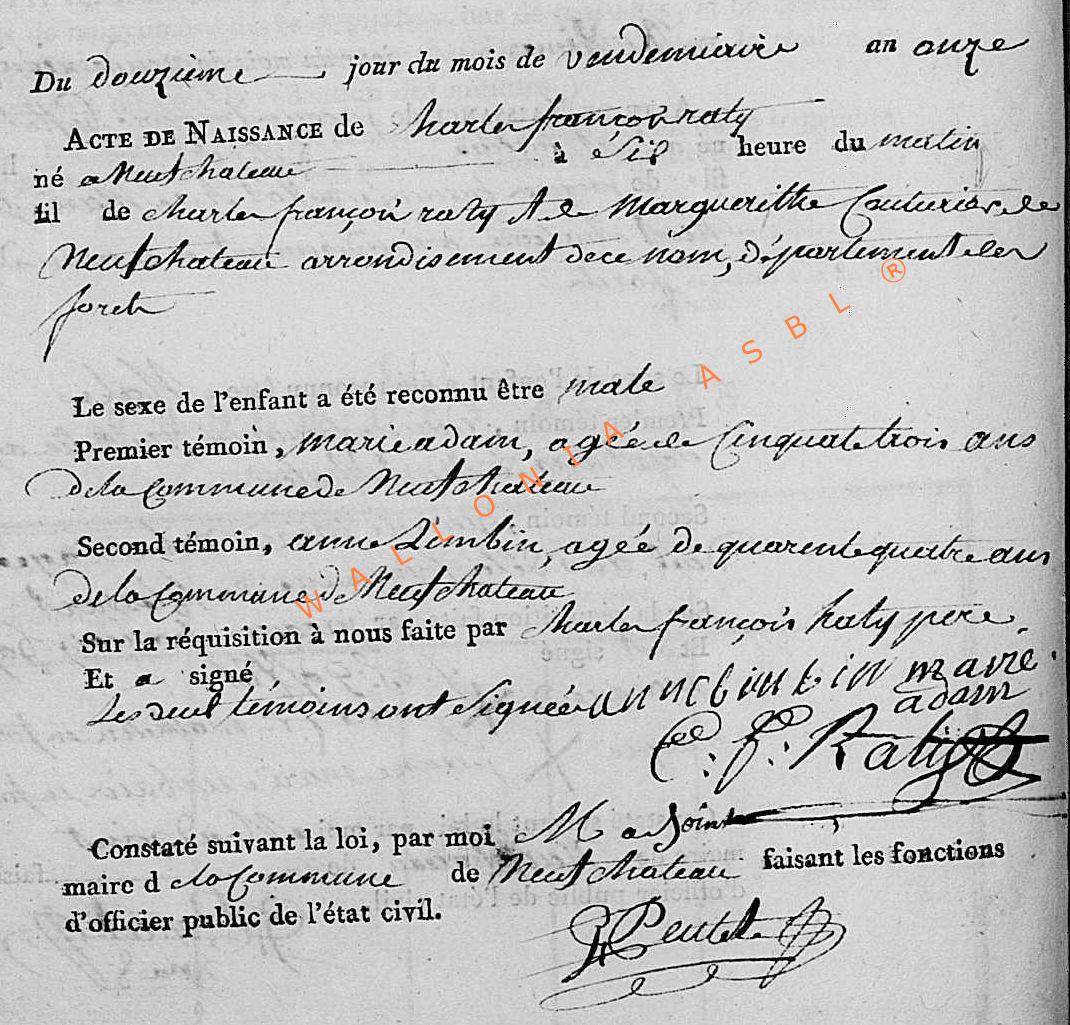 Du douzieme jour du mois de vendemiaire an onze
ACTE DE NAISSANCE de Charles françois raty
né a Neufchateau à Six heure du matin
fil de charles françois raty & de Margueritte Couturier de
Neufchateau arrondisement de ce nom, département des
foret
Le sexe de l'enfant a été reconnu être male
Premier témoin, marie adam, agée de Cinquate trois ans
de la Commune de Neufchateau
Second témoin, anne Limbin, agée de quarente quatre ans
de la Commune de Neufchateau
Sur la réquisition à nous faite par Charles françois Raty pere
Et a signé
Les deux témoins ont Signée anne limbin marie
adam
C. f. Raty
Constaté suivant la loi, par moi adjoint
maire d e la Commune de Neufchateau faisant les fonctions
d'officier public de l'état civil.
WALLONIA ASBL ®